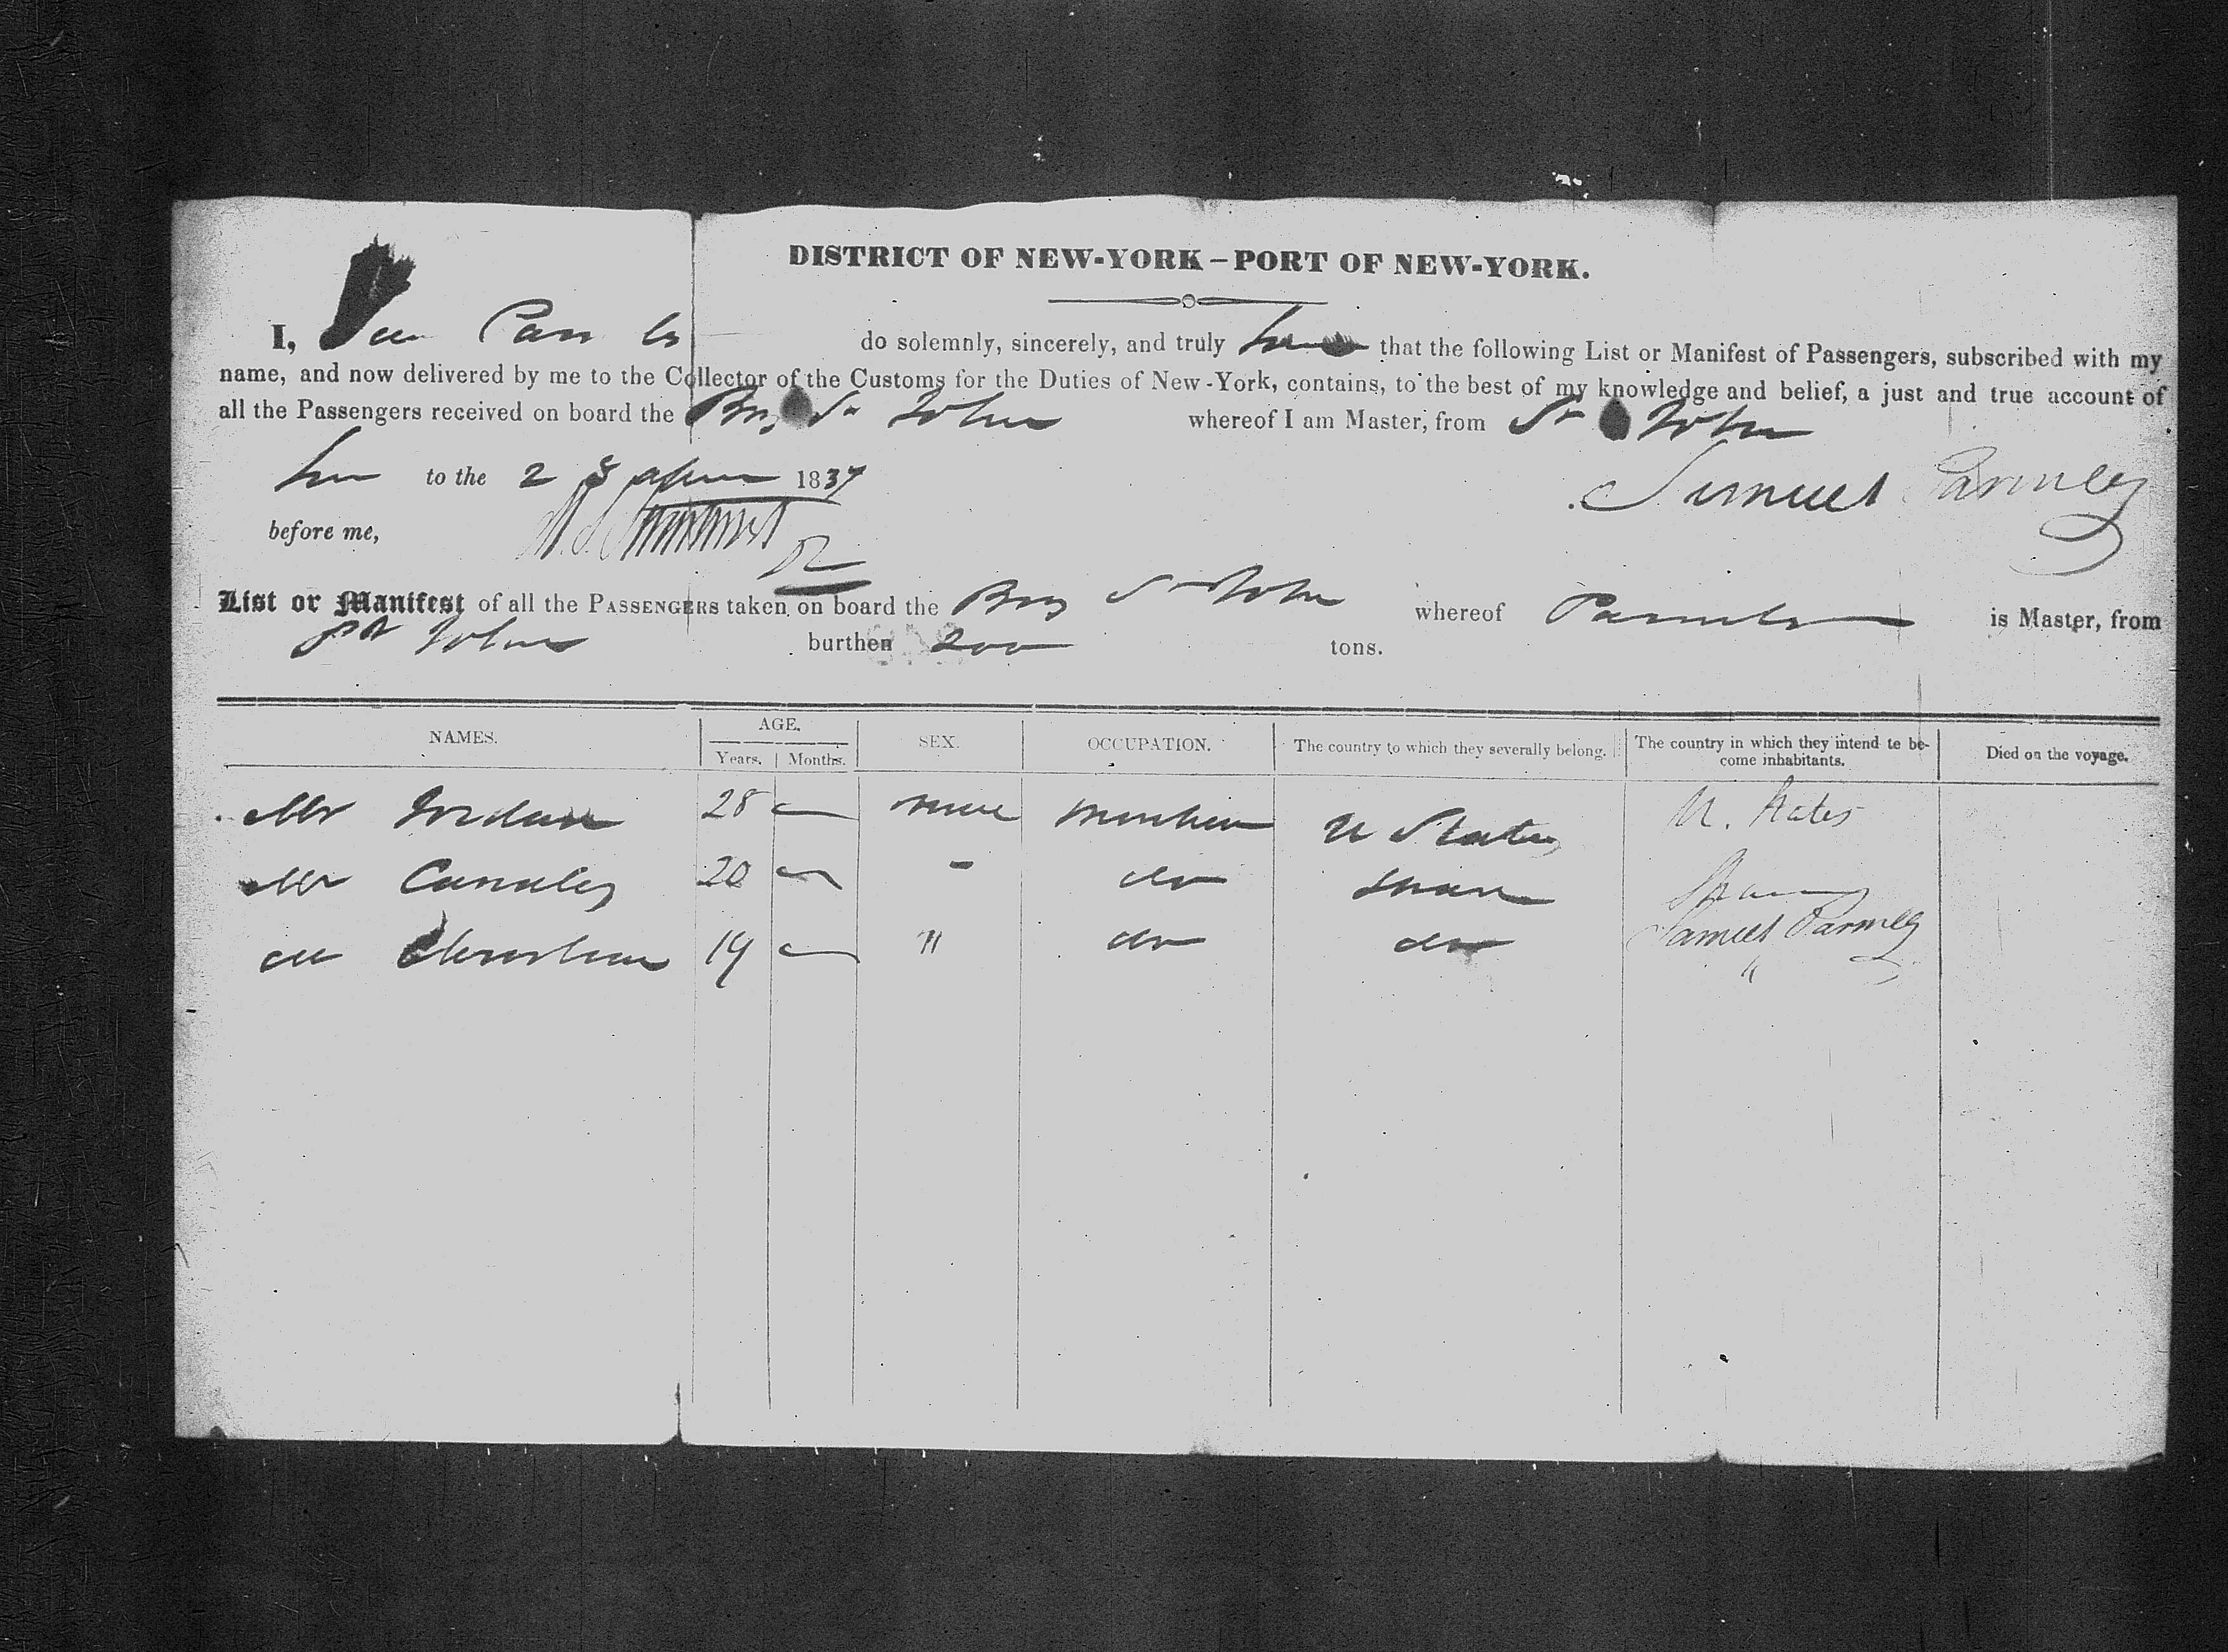 DISTRICT OF NEW-YORK – PORT OF NEW-YORK.
I, do solemnly, sincerely, and truly that the following List or Manifest of Passengers, subscribed with my
name, and now delivered by me to the Collector of the Customs for the Duties of New-York, contains, to the best of my knowledge and belief, a just and true account of
all the Passengers received on board the Brig St John whereof I am Master, from St John
to the 28 April 1837
Samuel Parmley
before me,
List or Manifest of all the PASSENGERS taken on board the Brig St John whereof Parmley is Master, from
St Johns burthen 200 tons.
NAMES. AGE. SEX. OCCUPATION. The country to which they severally belong. The country in which they intend te be-
come inhabitants. Died on the voyage.
Years. Months.
Mr Jordan 28 — male U States U. States
Mr 20 — " do Spain
Mr 19 — " do do
Samuel Parmley
"